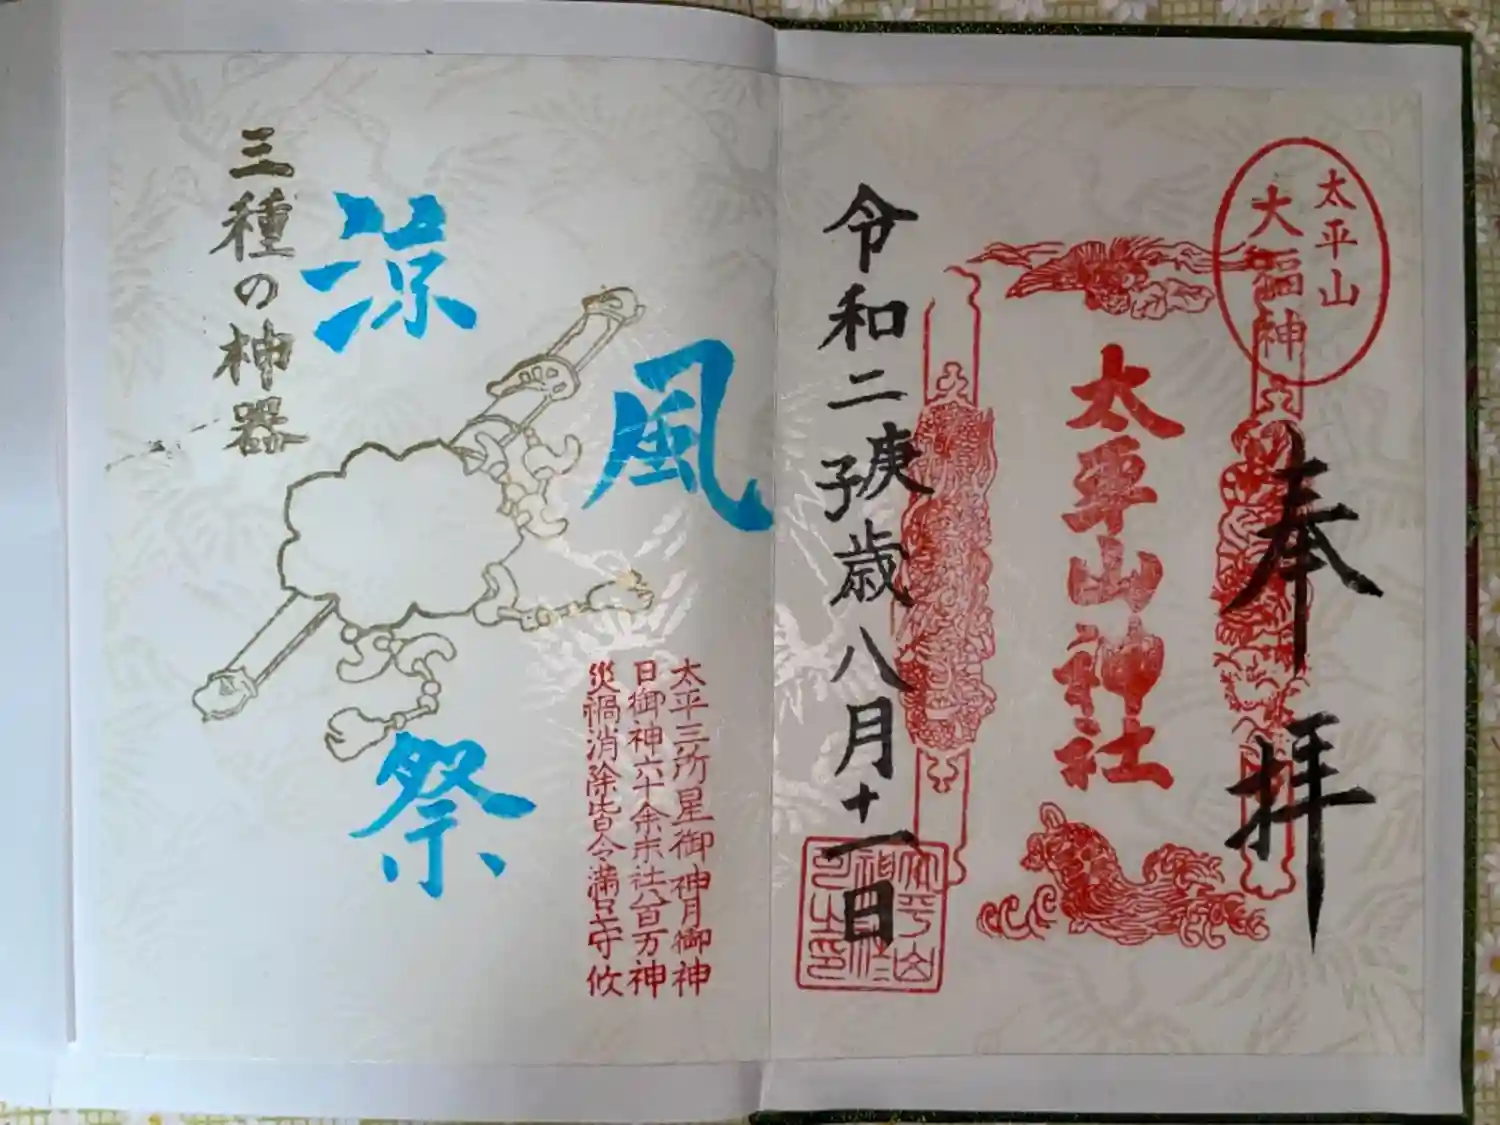 太平山
大福神
奉拝
太平山神社
令和二庚子歳八月十一日
涼風祭
三種の神器
太平三所星御神月御神
日御神六十余末社八百万神
災禍消除皆令満足守攸